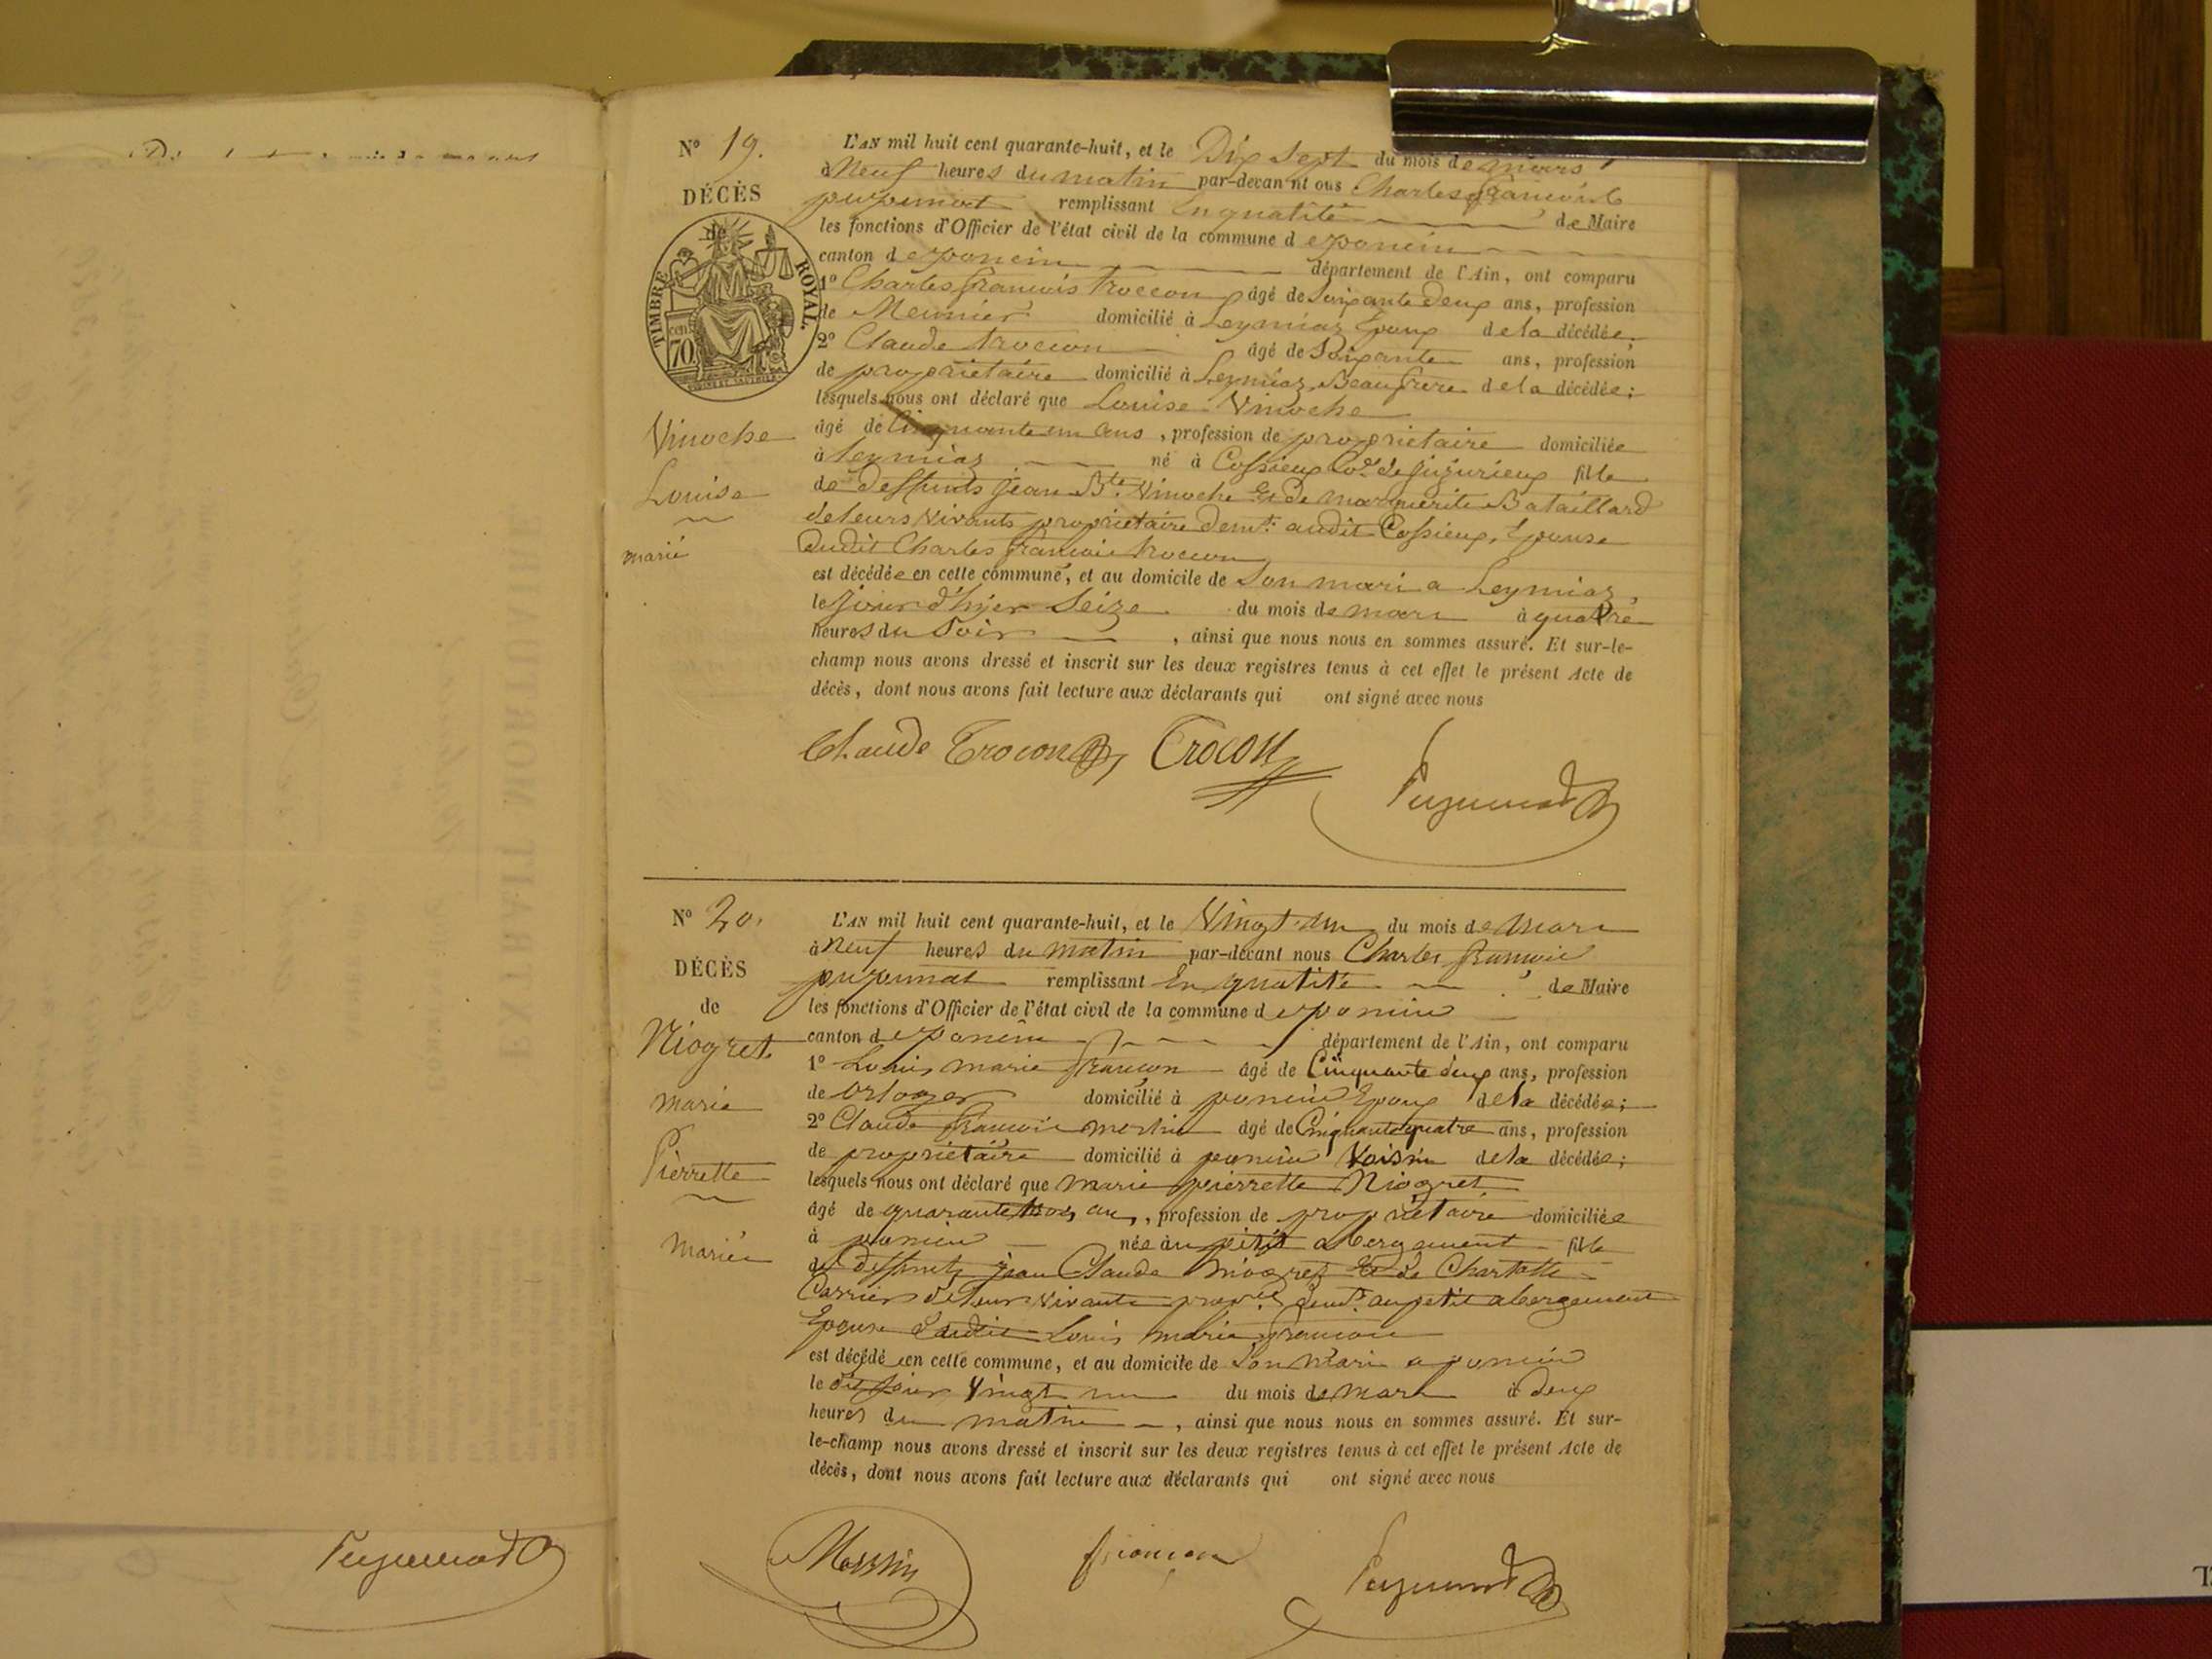 N° 19.
DÉCÈS
de
TIMBRE ROYAL.
cen. 70
Vinoche
Louise
marié
L'AN mil huit cent quarante-huit, et le Dix Sept du mois de mars
à Neuf heures du matin par-devan nt ous Charles françois
puyumat remplissant En qualité de Maire
les fonctions d'Officier de l'état civil de la commune d eponcin
canton d eponcin département de l'Ain, ont comparu
1° Charles françois troccon âgé de Soixante deux ans, profession
de Meunier domicilié à Leymiaz Epoux de la décédée;
2° Claude troccon âgé de Soixante ans, profession
de propriétaire domicilié à Leymiaz, Beaufrere de la décédée;
lesquels nous ont déclaré que Louise Vinoche
âgé de Cinquante un ans, profession de propriétaire domiciliée
à Leymiaz né à Cossieux Cne de jujurieux fille
de deffunts Jean Bte Vinoche Et de marguerite Bataillard
de leurs vivants propriétaire demt. audit Cossieux, Epouse
dudit Charles francois troccon
est décédée en cette commune, et au domicile de Son mari a Leymiaz,
le jour d'hier Seize du mois de mars à quatre
heures du Soir, ainsi que nous nous en sommes assuré. Et sur-le-
champ nous avons dressé et inscrit sur les deux registres tenus à cet effet le présent Acte de
décès, dont nous avons fait lecture aux déclarants qui ont signé avec nous
Claude Trocon Trocon
N° 20.
DÉCÈS
de
Niogret
marie
Pierrette
mariée
L'AN mil huit cent quarante-huit, et le Vingt-un du mois de mars
à neuf heures du matin par-devant nous Charles francois
puyumat remplissant En qualité de Maire
les fonctions d'Officier de l'état civil de la commune d eponcin
canton d eponcin département de l'Ain, ont comparu
1° Louis marie françon âgé de Cinquante deux ans, profession
de orloger domicilié à poncin Epoux de la décédée;
2° Claude francois messin âgé de Cinquante quatre ans, profession
de propriétaire domicilié à poncin Voisin de la décédée;
lesquels nous ont déclaré que marie pierrette Niogret
âgé de quarante trois ans, profession de propriétaire domiciliée
à poncin née au petit abergement fille
de deffunts jean Claude Niogret Et de Charlotte
Carrier de leur vivants propres demt. au petit abergement
Epouse dudit Louis marie françon
est décédé een cette commune, et au domicile de Son mari a poncin
le jour Vingt un du mois de mars à deux
heures du matin, ainsi que nous nous en sommes assuré. Et sur-
le-champ nous avons dressé et inscrit sur les deux registres tenus à cet effet le présent Acte de
décès, dont nous avons fait lecture aux déclarants qui ont signé avec nous
Messin françon